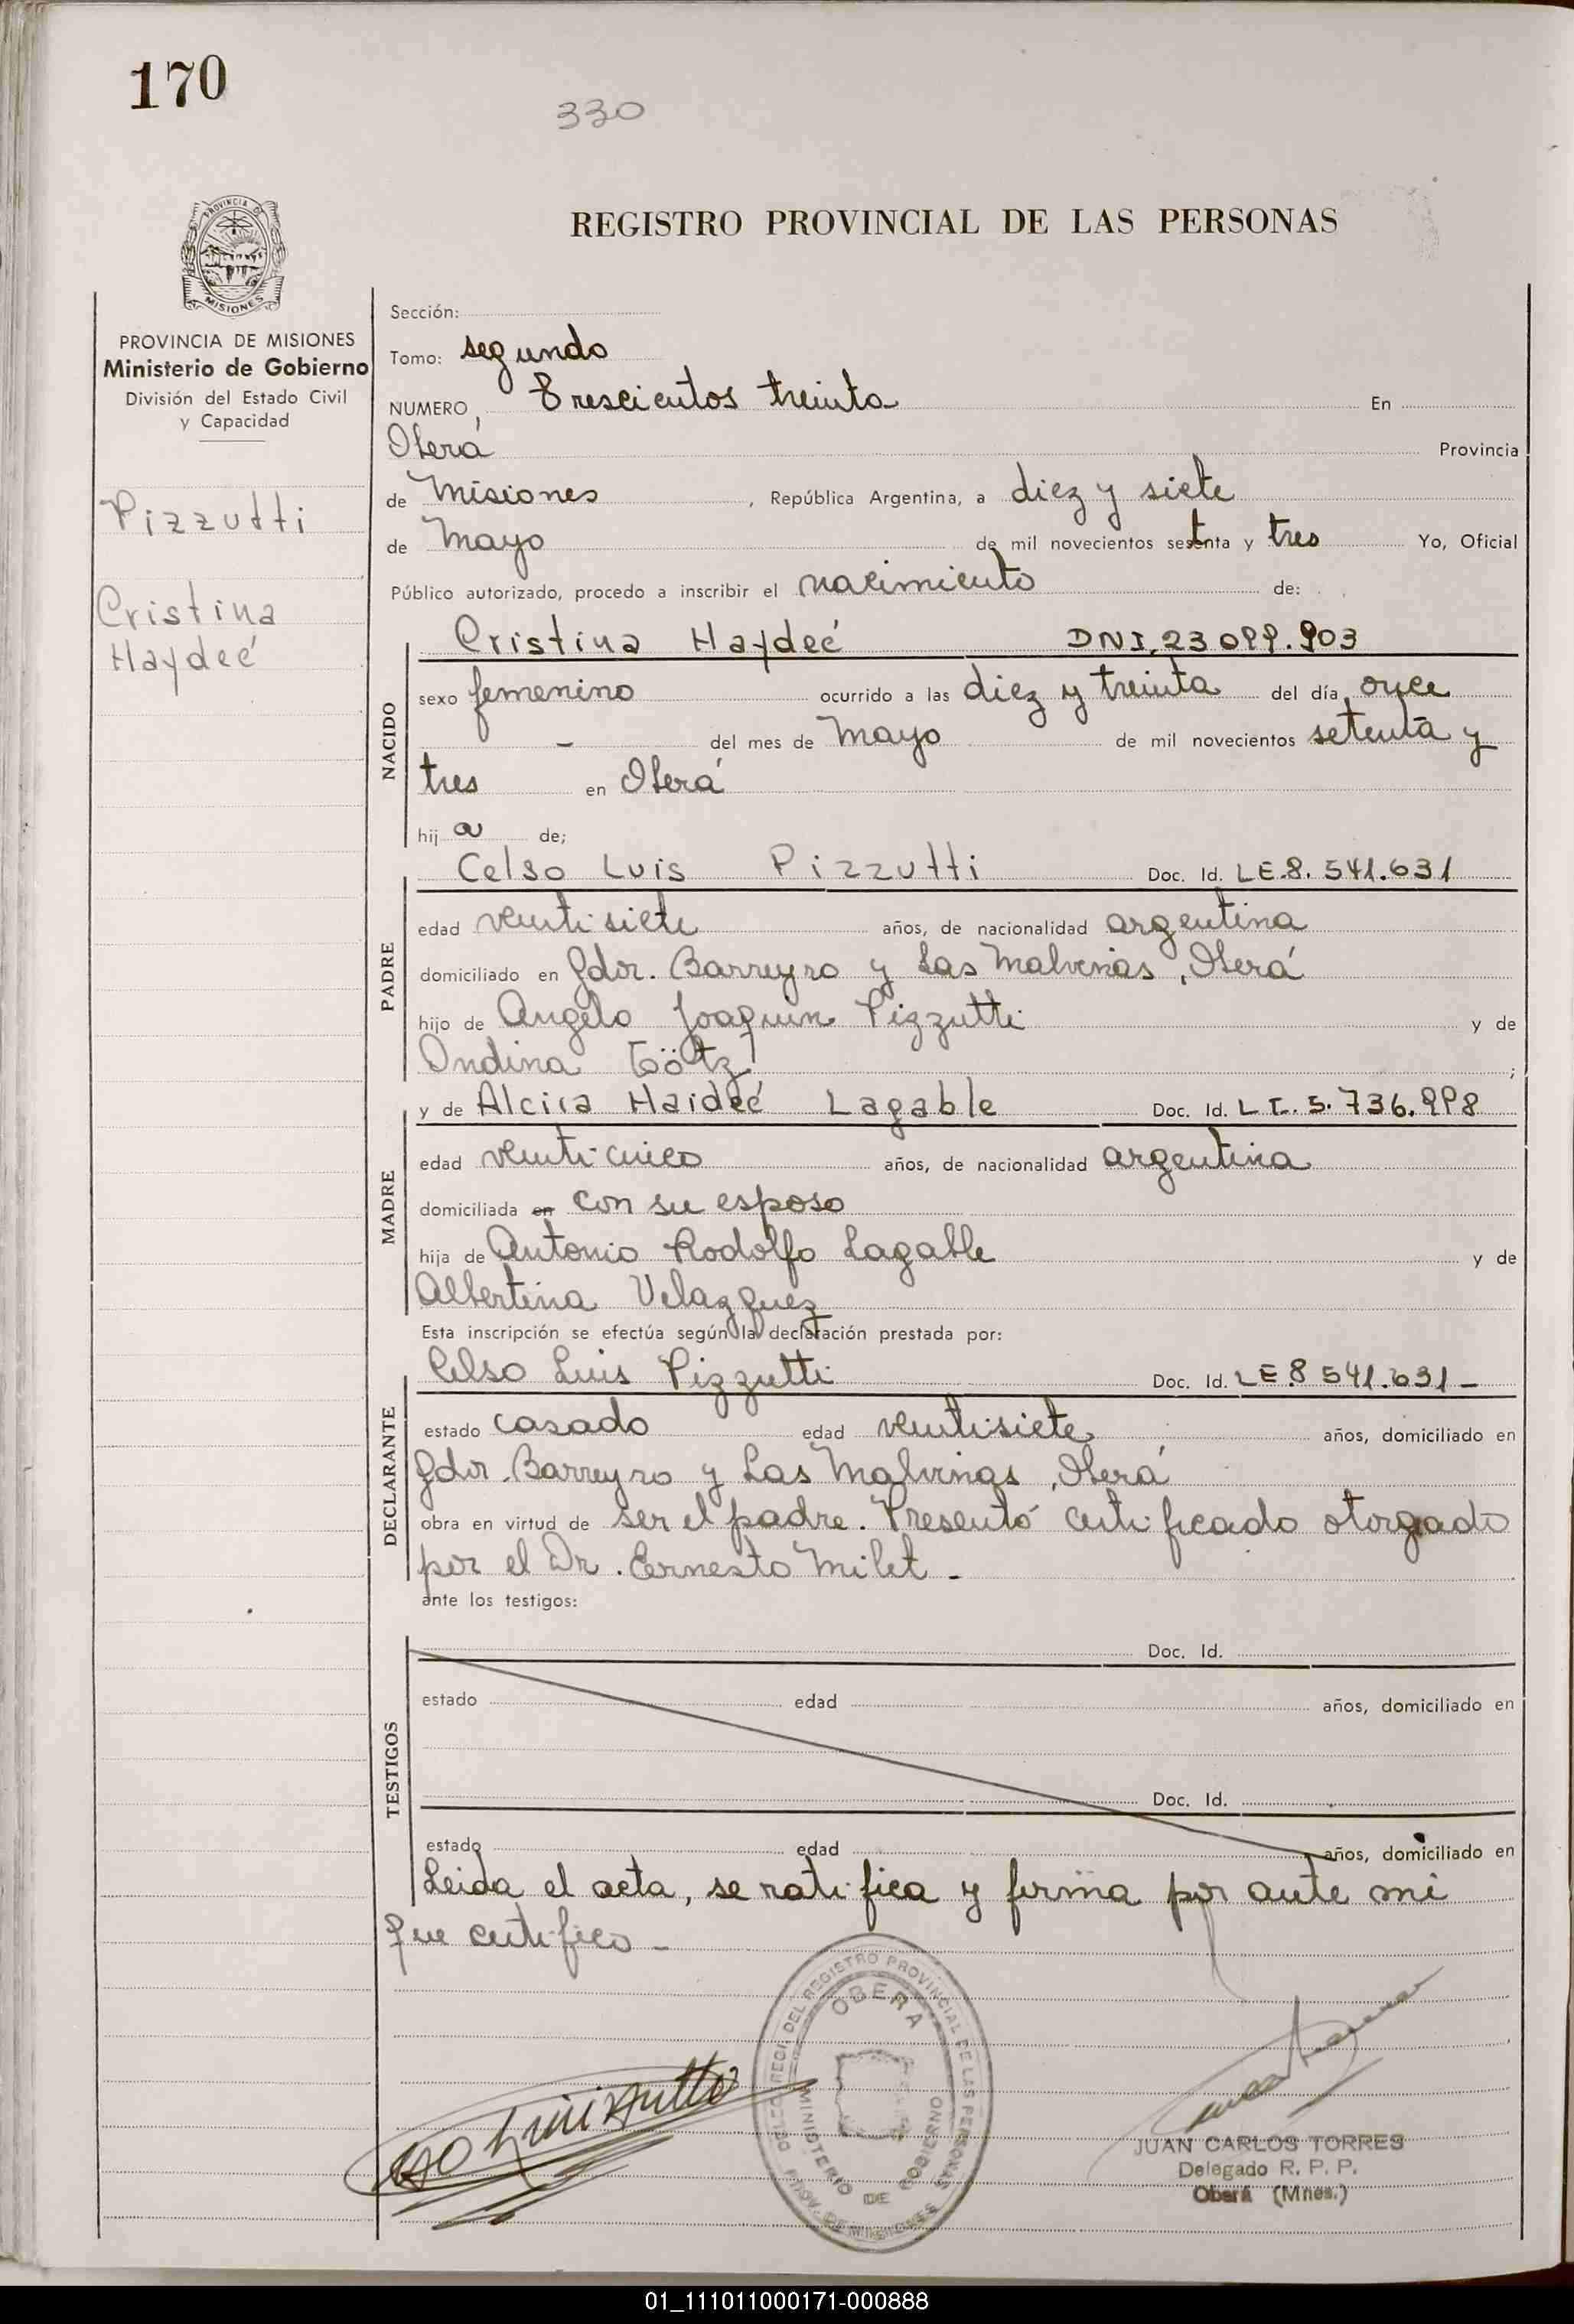 170
330
REGISTRO PROVINCIAL DE LAS PERSONAS
PROVINCIA DE MISIONES
Ministerio de Gobierno
División del Estado Civil
y Capacidad
Pizzutti
Cristina
Haydeé
Sección:
Tomo: segundo
NUMERO, Trescientos treinta En
Oberá Provincia
de Misiones, República Argentina, a diez y siete
de Mayo de mil novecientos setenta y tres Yo, Oficial
Público autorizado, procedo a inscribir el nacimiento de:
NACIDO
Cristina Haydeé DNI. 23 099.903
sexo femenino ocurrido a las diez y treinta del día once
- del mes de Mayo de mil novecientos setenta y
tres en Oberá
hij a de;
PADRE
Celso Luis Pizzutti Doc. Id. LE.8.541.631
edad veintisiete años, de nacionalidad argentina
domiciliado en Gdor. Barreyro y Las Malvinas, Oberá
hijo de Angelo Joaquin Pizzutti y de
Ondina ;
MADRE
y de Alcira Haideé Lagable Doc. Id. 5.736.998
edad veinticinco años, de nacionalidad argentina
domiciliada en con su esposo
hija de Antonio Rodolfo Lagable y de
Albertina Velazquez
Esta inscripción se efectúa según la declaración prestada por:
DECLARANTE
Celso Luis Pizzutti Doc. Id. LE.8 541.631-
estado casado edad veintisiete años, domiciliado en
Gdor. Barreyro y Las Malvinas, Oberá
obra en virtud de ser el padre. Presentó certificado otorgado
por el Dr. Ernesto Milet-
ante los testigos:
TESTIGOS
Doc. Id.
estado edad años, domiciliado en
Doc. Id.
estado edad años, domiciliado en
Leida el acta, se ratifica y firma por ante mi
que certifico-
DELEG. REGI. DEL REGISTRO PROVINCIAL DE LAS PERSONAS
OBERA
MINISTERIO DE GOBIERNO
PROV. DE MISIONES
JUAN CARLOS TORRES
Delegado R. P. P.
Oberá (Mnes.)
01_111011000171-000888